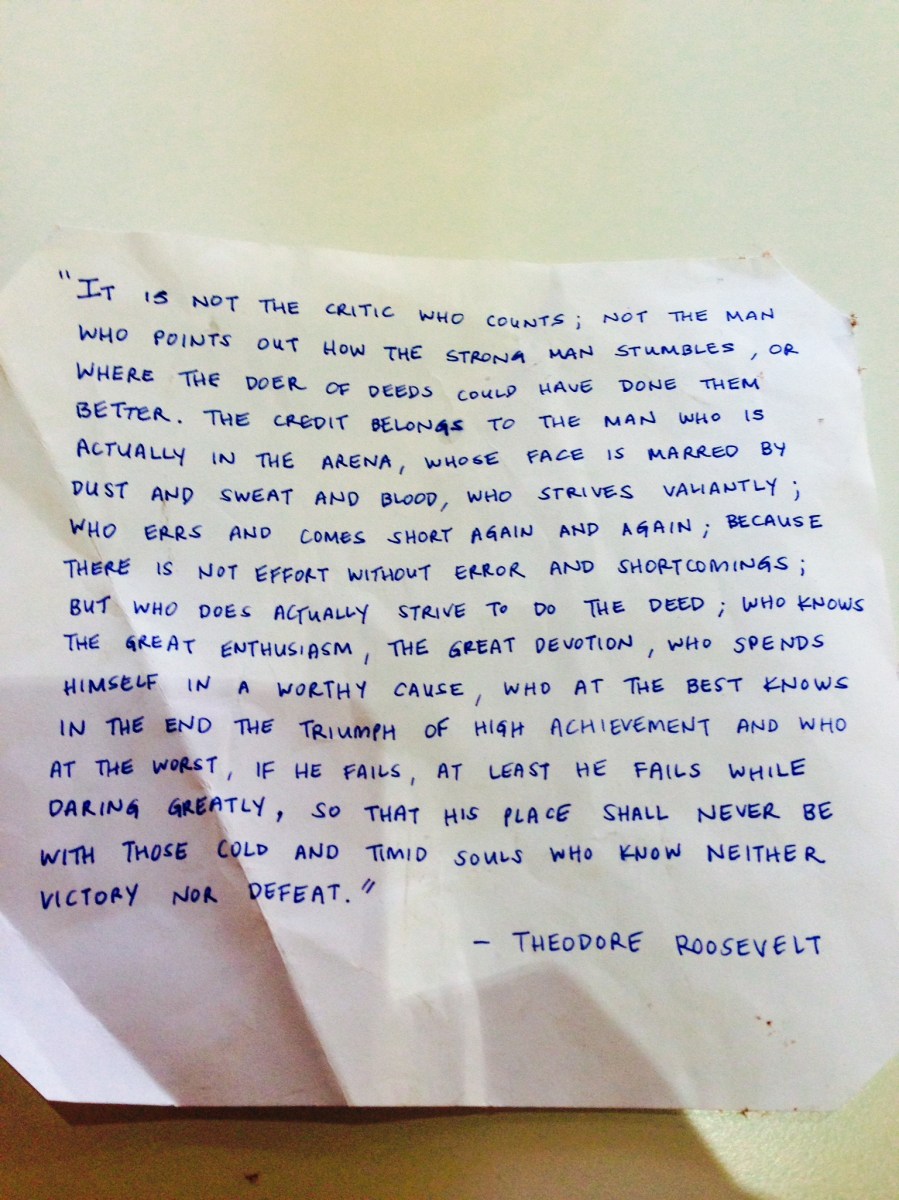 "IT IS NOT THE CRITIC WHO COUNTS; NOT THE MAN
WHO POINTS OUT HOW THE STRONG MAN STUMBLES, OR
WHERE THE DOER OF DEEDS COULD HAVE DONE THEM
BETTER. THE CREDIT BELONGS TO THE MAN WHO IS
ACTUALLY IN THE ARENA, WHOSE FACE IS MARRED BY
DUST AND SWEAT AND BLOOD, WHO STRIVES VALIANTLY;
WHO ERRS AND COMES SHORT AGAIN AND AGAIN; BECAUSE
THERE IS NOT EFFORT WITHOUT ERROR AND SHORTCOMINGS;
BUT WHO DOES ACTUALLY STRIVE TO DO THE DEED; WHO KNOWS
THE GREAT ENTHUSIASM, THE GREAT DEVOTION, WHO SPENDS
HIMSELF IN A WORTHY CAUSE, WHO AT THE BEST KNOWS
IN THE END THE TRIUMPH OF HIGH ACHIEVEMENT AND WHO
AT THE WORST, IF HE FAILS, AT LEAST HE FAILS WHILE
DARING GREATLY, SO THAT HIS PLACE SHALL NEVER BE
WITH THOSE COLD AND TIMID SOULS WHO KNOW NEITHER
VICTORY NOR DEFEAT."
- THEODORE ROOSEVELT